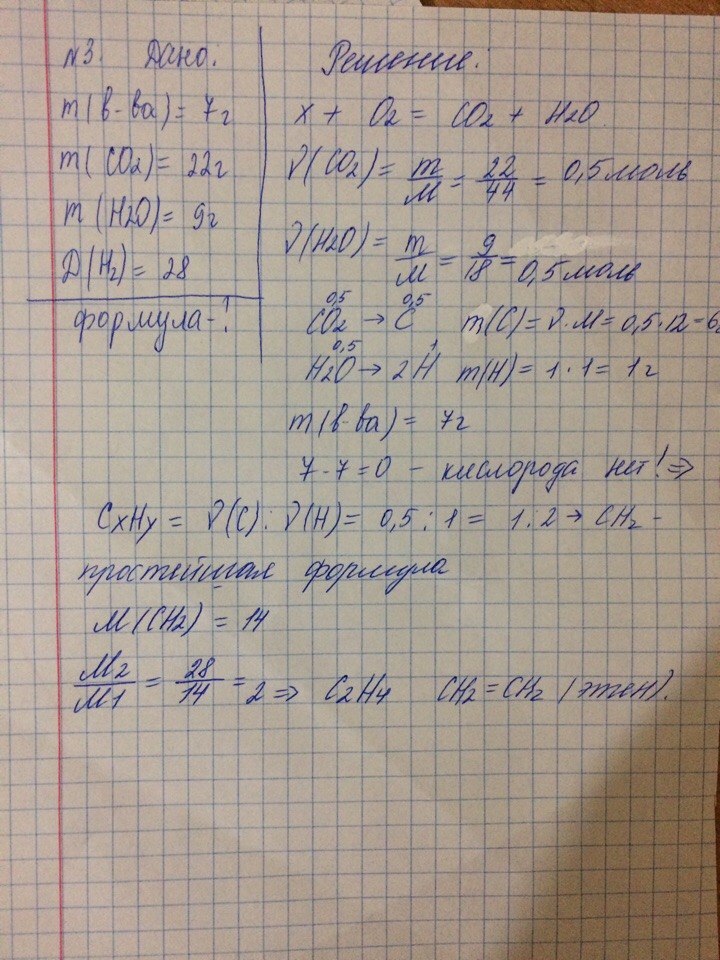 №3. Дано:
m(в-ва) = 7г
m(CO2) = 22г
m(H2O) = 9г
D(H2) = 28
формула-!
Решение:
x + O2 = CO2 + H2O
ν(CO2) = m/M = 22/44 = 0,5 моль
ν(H2O) = m/M = 9/18 = 0,5 моль
0,5 0,5
CO2 → C m(C) = ν·M = 0,5·12 = 6г
0,5 1
H2O → 2H m(H) = 1·1 = 1г
m(в-ва) = 7г
7-7=0 - кислорода нет! ⇒
CxHy = ν(C) : ν(H) = 0,5 : 1 = 1:2 → CH2 -
простейшая формула
M(CH2) = 14
M2/M1 = 28/14 = 2 ⇒ C2H4 CH2=CH2 (этен).